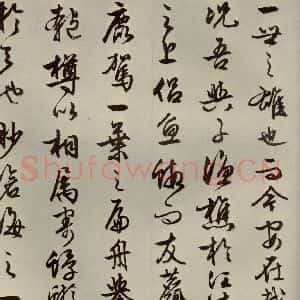 一世之雄也而今安在哉
况吾與子漁樵於江
之上侣魚蝦而友麋
鹿駕一葉之扁舟舉
匏樽以相屬寄蜉蝣
於天地渺滄海之一
Shufawang.CN